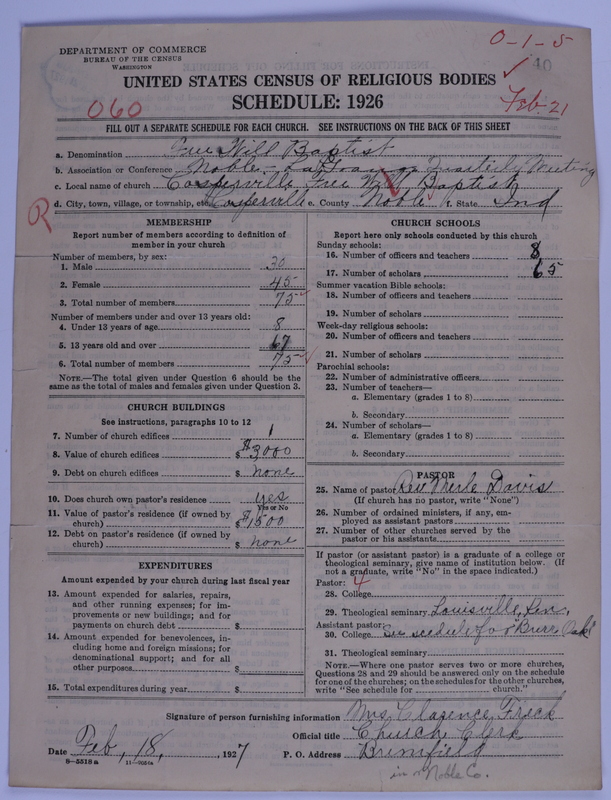 0-1-5
40
DEPARTMENT OF COMMERCE
BUREAU OF THE CENSUS
WASHINGTON
UNITED STATES CENSUS OF RELIGIOUS BODIES
SCHEDULE: 1926
060
Feb. 21
FILL OUT A SEPARATE SCHEDULE FOR EACH CHURCH. SEE INSTRUCTIONS ON THE BACK OF THIS SHEET
a. Denomination Free Will Baptist
b. Association or Conference Noble - LaGrange Quarterly Meeting
c. Local name of church Cosperville Free Will Baptist
d. City, town, village, or township, etc. Cosperville e. County Noble f. State Ind
R
MEMBERSHIP
Report number of members according to definition of
member in your church
Number of members, by sex:
1. Male 30
2. Female 45
3. Total number of members 75
Number of members under and over 13 years old:
4. Under 13 years of age 8
5. 13 years old and over 67
6. Total number of members 75
NOTE.—The total given under Question 6 should be the
same as the total of males and females given under Question 3.
CHURCH BUILDINGS
See instructions, paragraphs 10 to 12
7. Number of church edifices 1
8. Value of church edifices $ $3000
9. Debt on church edifices $ none
10. Does church own pastor's residence yes
Yes or No
11. Value of pastor's residence (if owned by
church) $ $1500
12. Debt on pastor's residence (if owned by
church) $ none
EXPENDITURES
Amount expended by your church during last fiscal year
13. Amount expended for salaries, repairs,
and other running expenses; for im-
provements or new buildings; and for
payments on church debt $
14. Amount expended for benevolences, in-
cluding home and foreign missions; for
denominational support; and for all
other purposes $
15. Total expenditures during year $
CHURCH SCHOOLS
Report here only schools conducted by this church
Sunday schools:
16. Number of officers and teachers 8
17. Number of scholars 65
Summer vacation Bible schools:
18. Number of officers and teachers
19. Number of scholars
Week-day religious schools:
20. Number of officers and teachers
21. Number of scholars
Parochial schools:
22. Number of administrative officers
23. Number of teachers—
a. Elementary (grades 1 to 8)
b. Secondary
24. Number of scholars—
a. Elementary (grades 1 to 8)
b. Secondary
PASTOR
25. Name of pastor Rev Merle Davis
(If church has no pastor, write "None")
26. Number of ordained ministers, if any, em-
ployed as assistant pastors
27. Number of other churches served by the
pastor or his assistants
If pastor (or assistant pastor) is a graduate of a college or
theological seminary, give name of institution below. (If
not a graduate, write "No" in the space indicated.)
Pastor: 4
28. College
29. Theological seminary Louisville, Sen,
Assistant pastor:
30. College See scedule for "Burr Oak"
31. Theological seminary
NOTE.—Where one pastor serves two or more churches,
Questions 28 and 29 should be answered only on the schedule
for one of the churches; on the schedules for the other churches,
write "See schedule for church."
Signature of person furnishing information Mrs Clarence Frick
Official title Church Clerk
Date Feb, 18, 1927 P. O. Address Brimfield
8—5518a 11—9064a
in Noble Co.